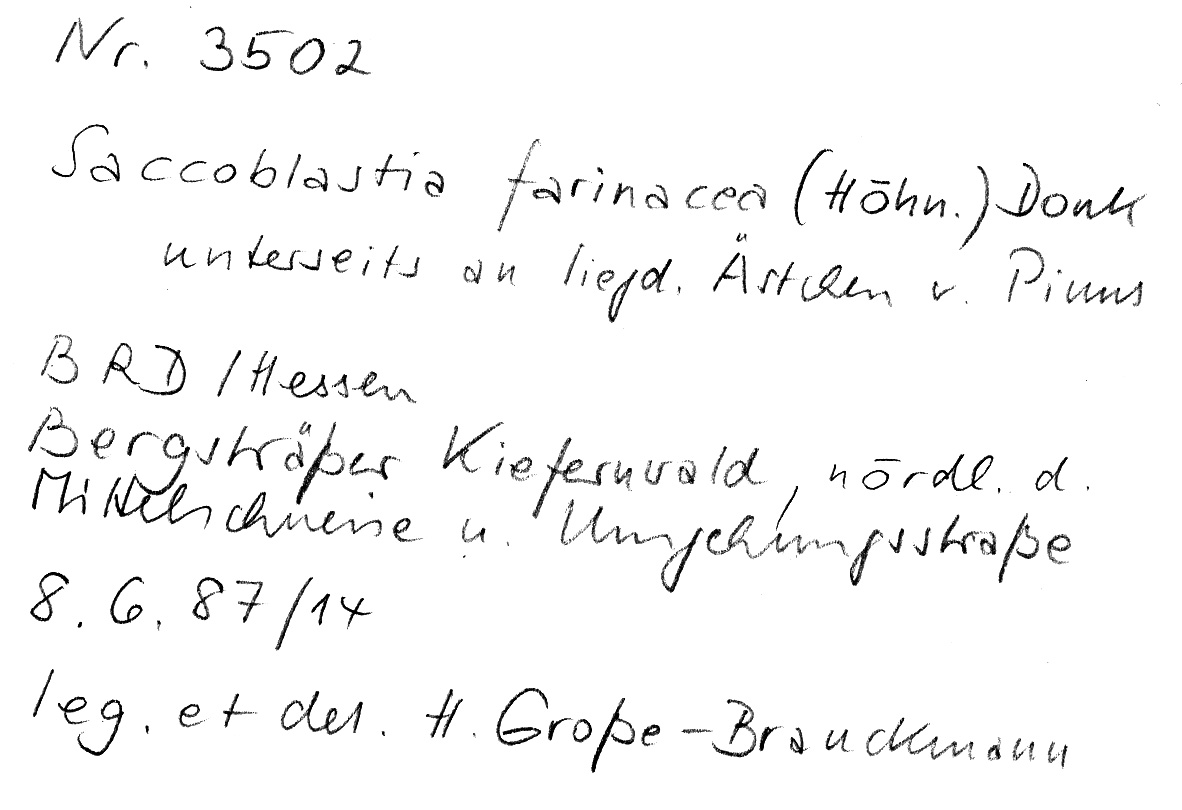 Nr. 3502
Saccoblastia farinacea (Höhn.) Donk
unterseits an liegd. Ästchen v. Pinus
BRD / Hessen
Bergsträßer Kiefernwald, nördl. d.
Mittelschneise u. Umgehungsstraße
8.6.87/14
leg. et det. H. Große-Brauckmann